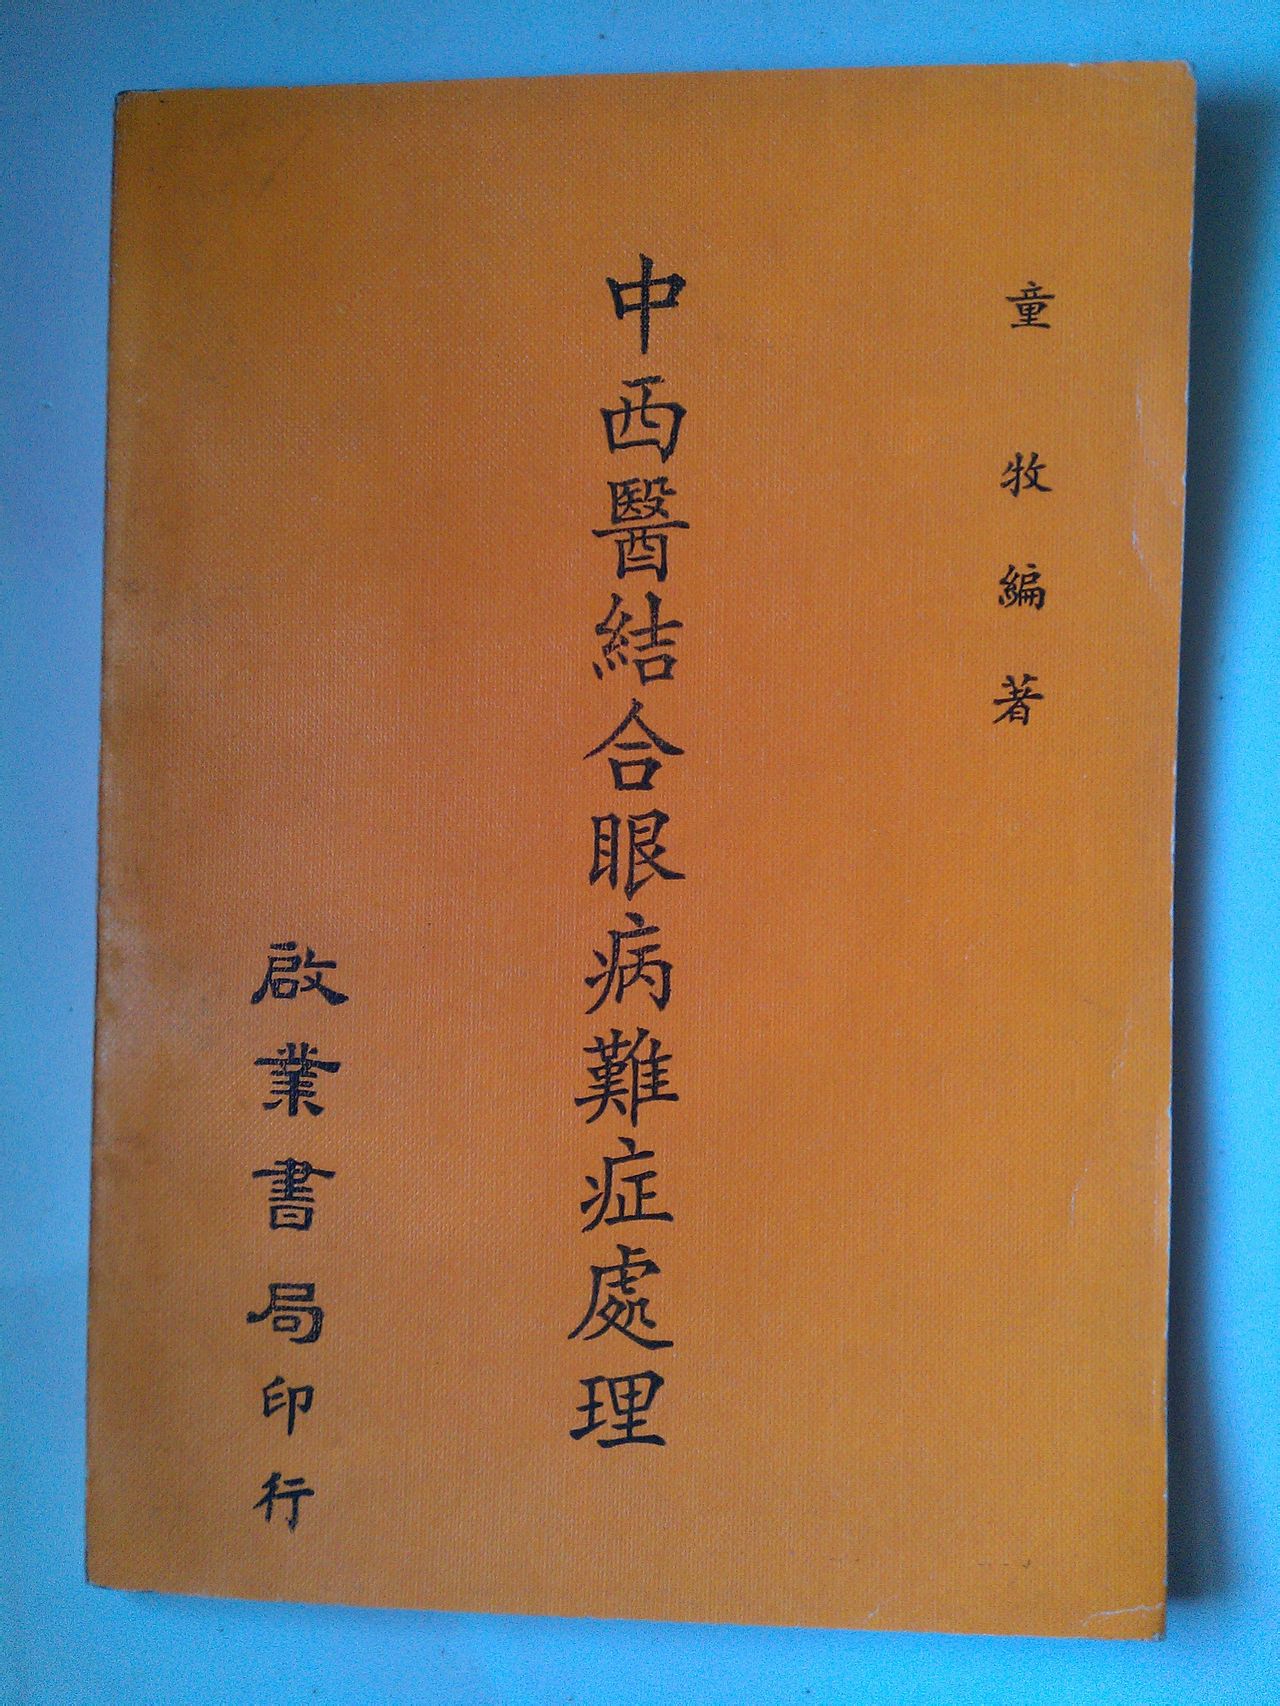 童牧編著
中西醫結合眼病難症處理
啟業書局印行